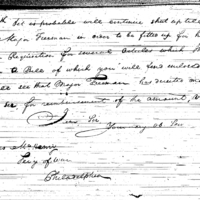 is probable will continue shut up till
Major Freeman in order to be fitted up for h
Requisition for several articles which
a Bill of which you will find enclosed
see that Major Freeman has desired me
for reimbursement of the amount,
I am Sir,
Your ob Ser
McHenry
Secy of War
Philadelphia